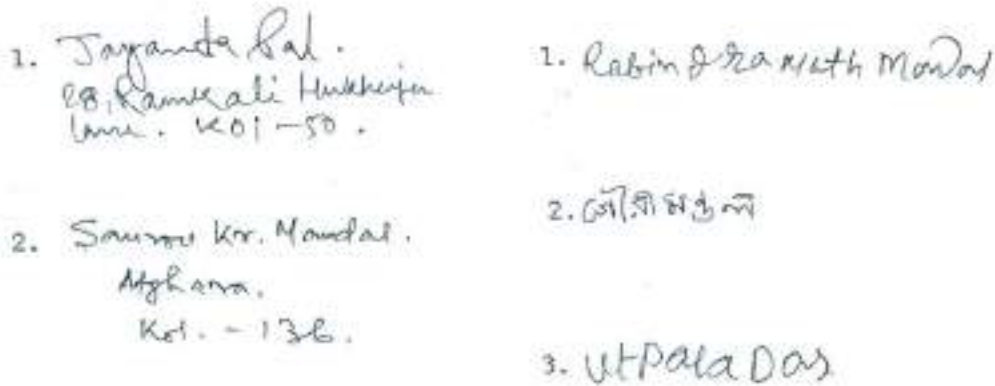 1. Jayanta Pal.
28, Ramkali Mukherjee
Lane. Kol-50.
2. Sourav Kr. Mondal.
Atghara.
Kol. - 136.
1. Rabindranath Mondal
2. গৌরী মণ্ডল
3. Utpala Das